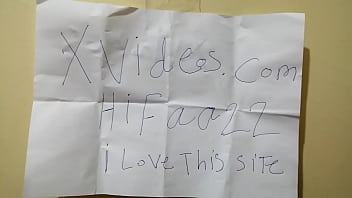 XVideos.com
HiFaa22
i Love This SiTe